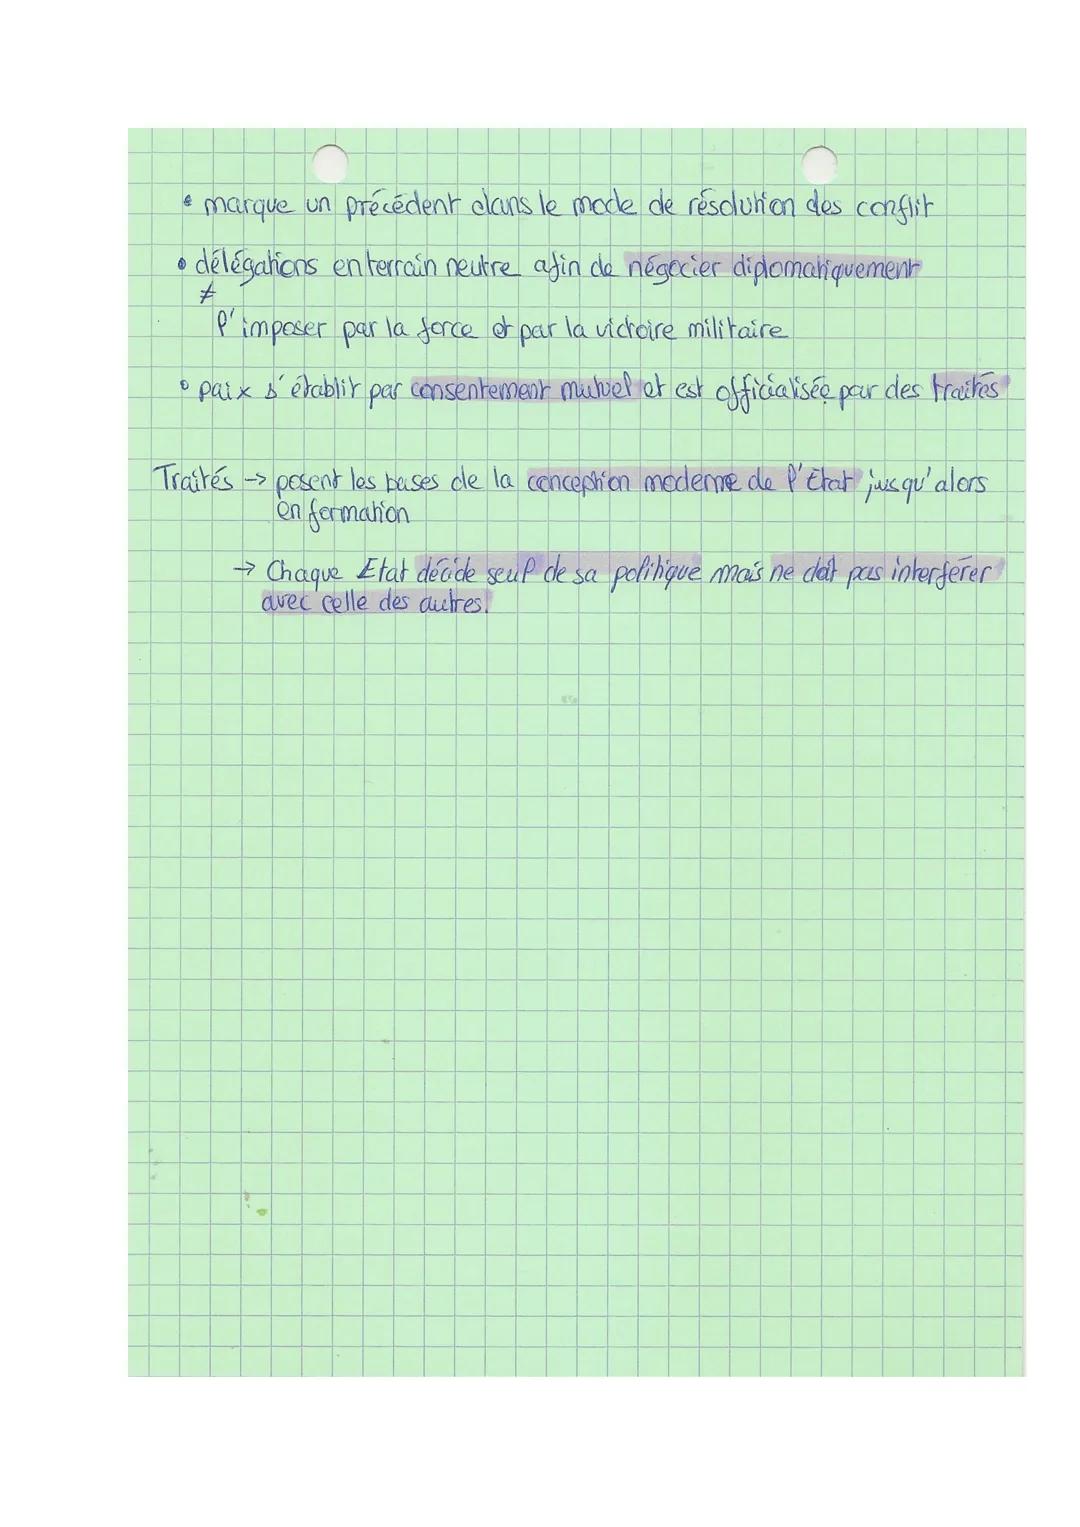 • marque un précédent dans le mode de résolution des conflit
• délégations en terrain neutre afin de négocier diplomatiquement
≠
l'imposer par la force et par la victoire militaire
• paix s'établit par consentement mutuel et est officialisée par des traités
Traités -> posent les bases de la conception moderne de l'Etat jusqu'alors
en formation
-> Chaque Etat décide seul de sa politique mais ne doit pas interférer
avec celle des autres.